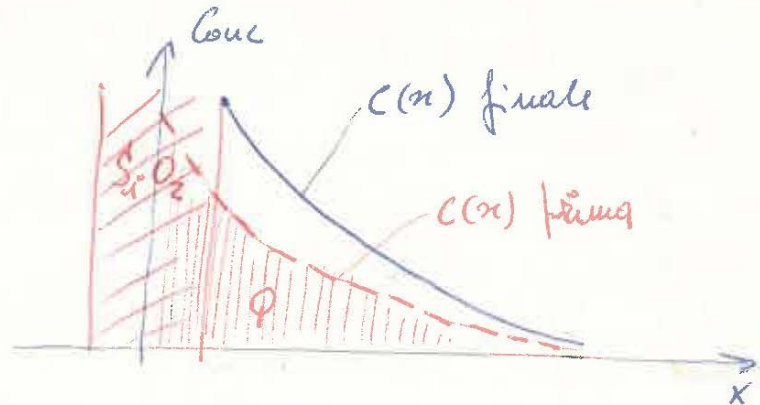 Conc
C(x) finale
SiO2
C(x) prima
Q
x